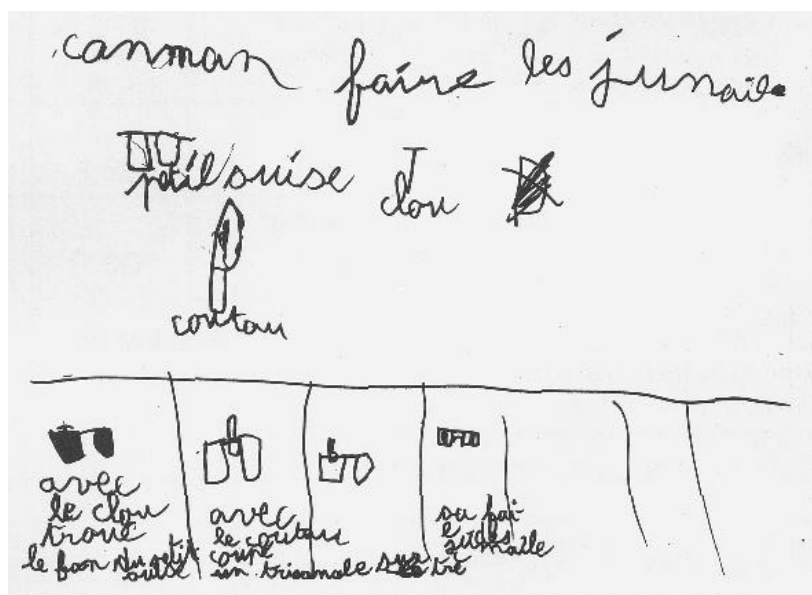 canman faire les junaile
petil suise clou
coutau
avec
le clou
troue
le fon du petit
suise
avec
le coutau
coupe
un trisamale sur le tré
sa fai
les
jumaille